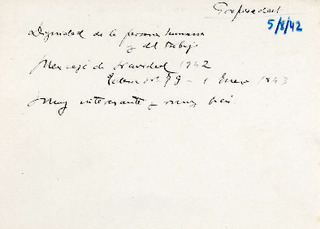 5/8/42
Dignidad de la persona humana
y del trabajo
Mensaje de Navidad 1942
79 - 1 Enero 1943
Muy interesante y muy